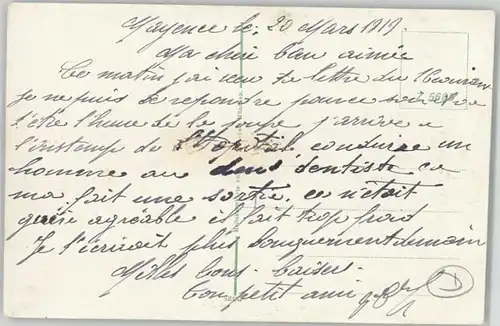 Mayence le, 20 Mars 1919.
Ma chère bien aimée
Ce matin j'ai eu de lettre du
je ne puis se repondre
l'être l'heure de la j'arrive a
l'instemp de l'Hopital conduire un
homme au dens dentiste ca
ma fait une sortie. ce n'était
guère agréable il fait trop froid
Je t'écrirait plus longuement demain
Milles bons baisers
Ton petit ami